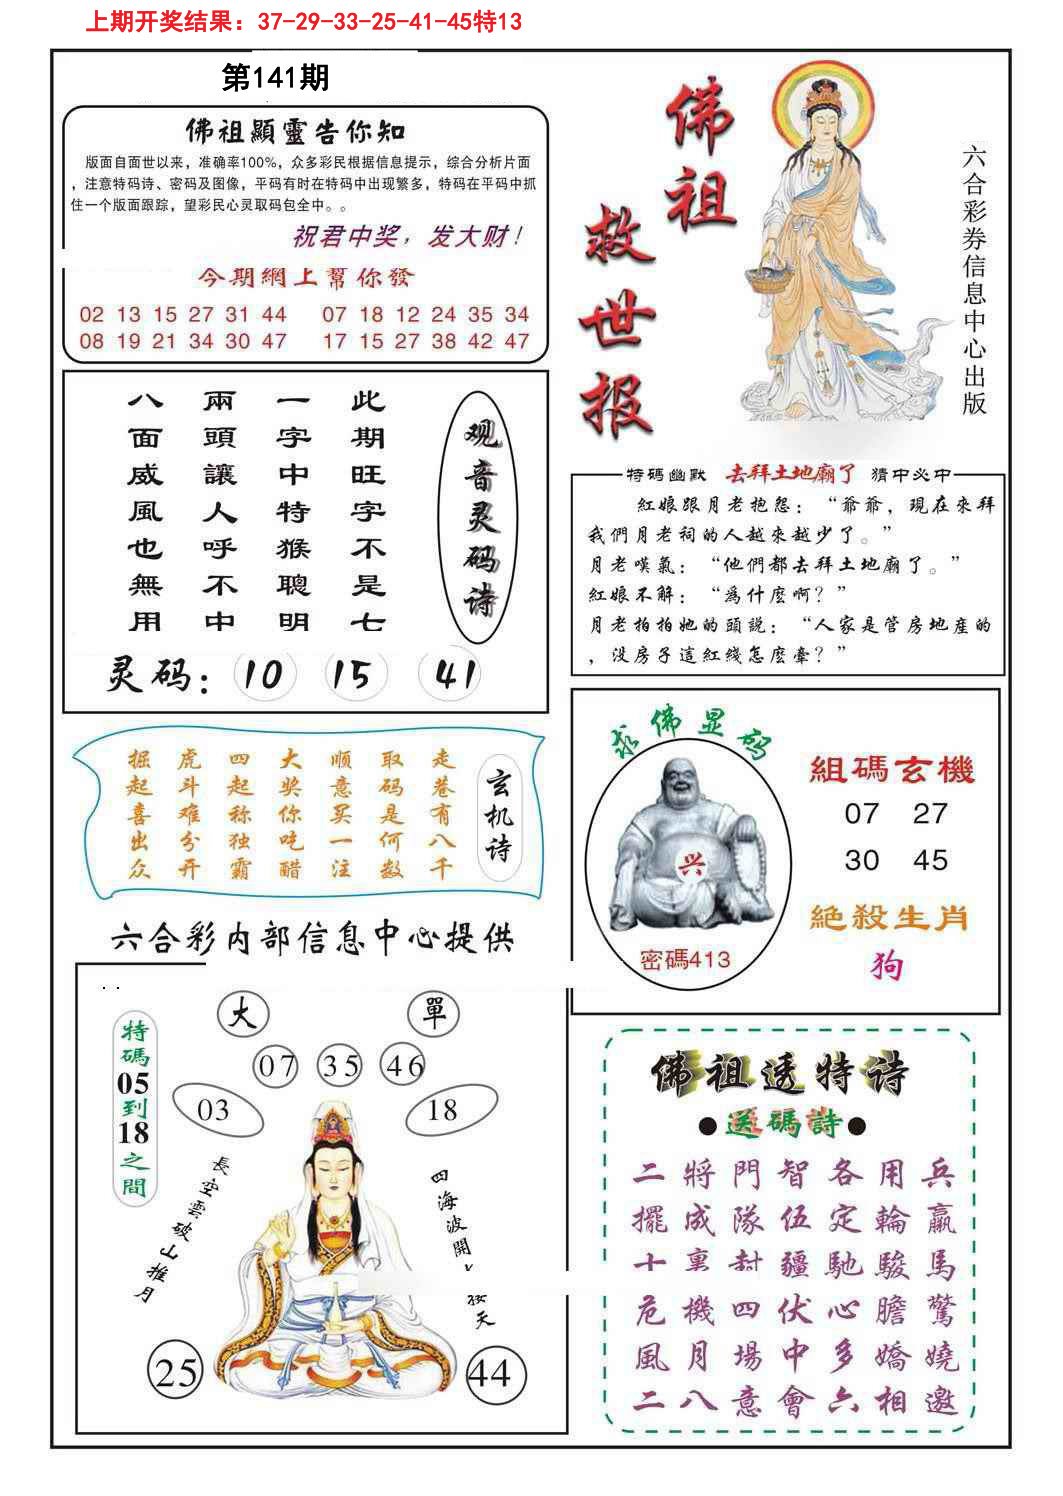 上期开奖结果：37-29-33-25-41-45特13
第141期
佛祖顯靈告你知
版面自面世以来，准确率100%，众多彩民根据信息提示，综合分析片面
，注意特码诗、密码及图像，平码有时在特码中出现繁多，特码在平码中抓
住一个版面跟踪，望彩民心灵取码包全中。。
祝君中奖，发大财！
今期網上幫你發
02 13 15 27 31 44 07 18 12 24 35 34
08 19 21 34 30 47 17 15 27 38 42 47
佛祖
救世报
六合彩券信息中心出版
观音灵码诗
此期旺字不是七
一字中特猴聰明
兩頭讓人呼不中
八面威風也無用
灵码：10 15 41
特碼幽默 去拜土地廟了 猜中必中
紅娘跟月老抱怨：“爺爺，現在來拜
我們月老祠的人越來越少了。”
月老嘆氣：“他們都去拜土地廟了。”
紅娘不解：“為什麼啊？”
月老拍拍她的頭説：“人家是管房地産的
，没房子這紅綫怎麼牽？”
玄机诗
走巷有八千
取码是何数
顺意买一注
大奖你吃醋
四起称独霸
虎斗难分开
掘起喜出众
求佛显码
兴
密碼413
組碼玄機
07 27
30 45
絕殺生肖
狗
六合彩内部信息中心提供
特碼05到18之間
大 單
07 35 46
03 18
長空雲破山推月
四海波開
接天
25 44
佛祖透特诗
●送碼詩●
二將門智各用兵
擺成隊伍定輪贏
十裏封疆馳駿馬
危機四伏心膽驚
風月場中多嬌嬈
二八意會六相邀